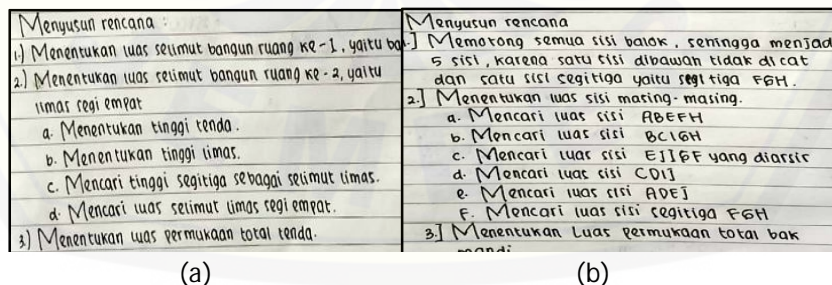 Menyusun rencana :
1.) Menentukan luas selimut bangun ruang ke-1, yaitu ba
2.) Menentukan luas selimut bangun ruang ke-2, yaitu
limas segi empat
a. Menentukan tinggi tenda.
b. Menentukan tinggi limas.
c. Mencari tinggi segitiga sebagai selimut limas.
d. Mencari luas selimut limas segi empat.
3.) Menentukan luas permukaan total tenda.
(a)
Menyusun rencana
.] Memotong semua sisi balok, sehingga menjad
5 sisi, karena satu sisi dibawah tidak di cat
dan satu sisi segitiga yaitu segi tiga FGH.
2.] Menentukan luas sisi masing-masing.
a. Mencari luas sisi ABEFH
b. Mencari luas sisi BCIGH
c. Mencari luas sisi EJIGF yang diarsir
d. Mencari luas sisi CDIJ
e. Mencari luas sisi ADEJ
F. Mencari luas sisi segitiga FGH
3.] Menentukan Luas permukaan total bak
mandi
(b)